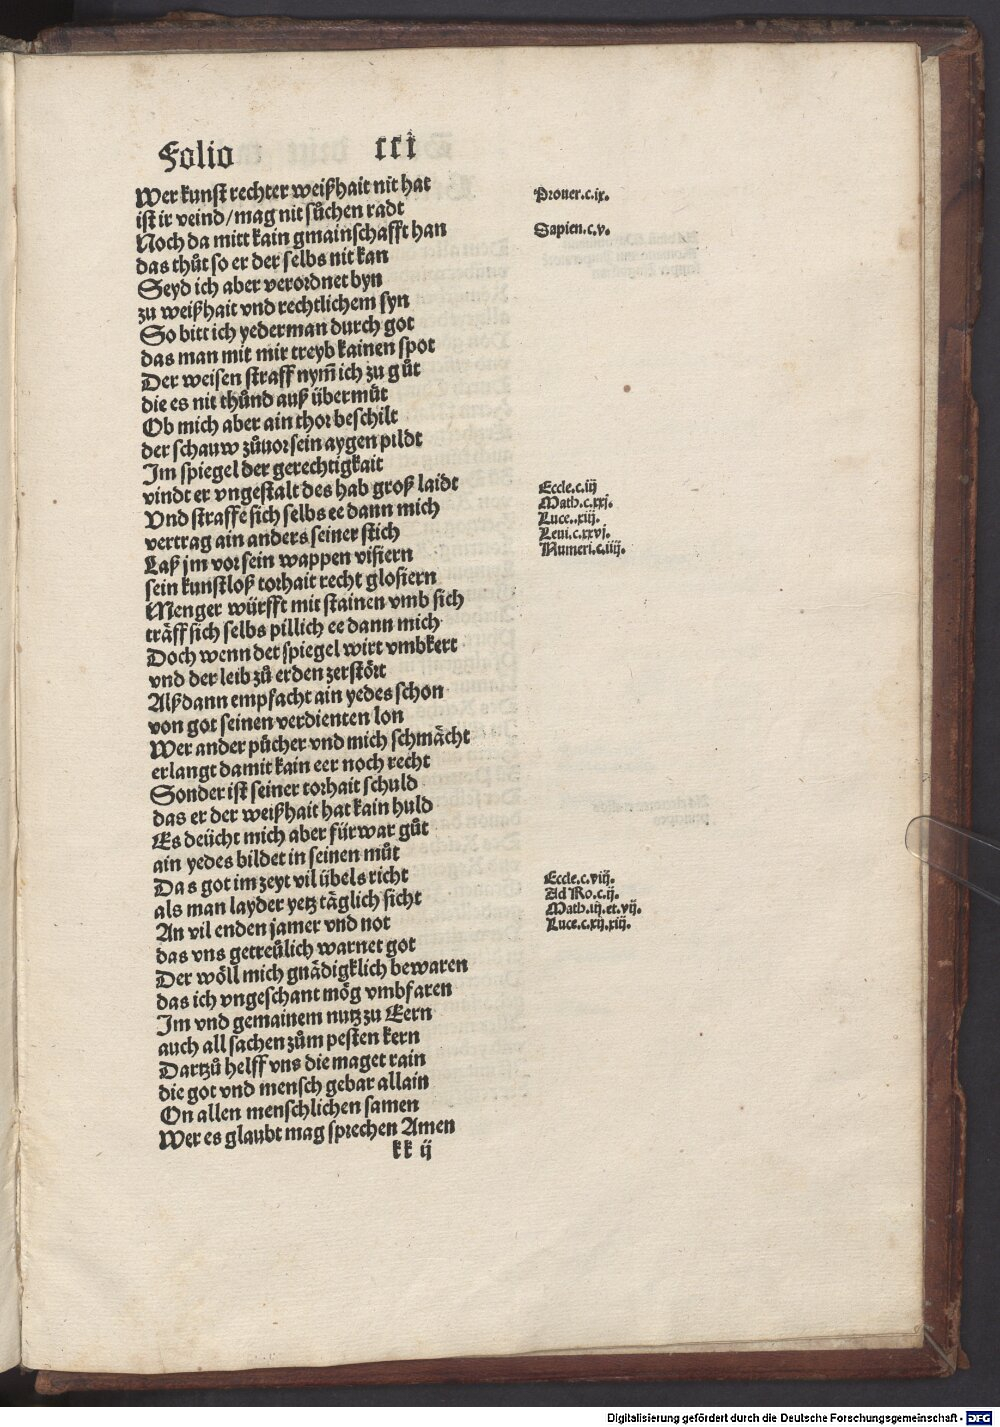 Folio ccci
Wer kunst rechter weißhait nit hat
ist ir veind / mag nit sůchen radt
Noch da mitt kain gmainschafft han
das thůt so er der selbs nit kan
Seyd ich aber verordnet byn
zu weißhait vnd rechtlichem syn
So bitt ich yederman durch got
das man mit mir treyb kainen spot
Der weisen straff nym̄ ich zu gůt
die es nit thůnd auß übermůt
Ob mich aber ain thor beschilt
der schauw zůuor sein aygen pildt
Im spiegel der gerechtigkait
vindt er vngestalt des hab groß laidt
Vnd straffe sich selbs ee dann mich
vertrag ain anders seiner stich
Laß jm vor sein wappen visiern
sein kunstloß torhait recht glosiern
Menger würfft mit stainen vmb sich
träff sich selbs pillich ee dann mich
Doch wenn det spiegel wirt vmbkert
vnd der leib zů erden zerstört
Alßdann empfacht ain yedes schon
von got seinen verdienten lon
Wer ander pücher vnd mich schmächt
erlangt damit kain eer noch recht
Sonder ist seiner torhait schuld
das er der weißhait hat kain huld
Es deücht mich aber fürwar gůt
ain yedes bildet in seinen můt
Das got im zeyt vil übels richt
als man layder yetz täglich sicht
An vil enden jamer vnd not
das vns getreülich warnet got
Der wöll mich gnädigklich bewaren
das ich vngeschant mög vmbfaren
Im vnd gemainem nutz zu Eern
auch all sachen zům pesten kern
Dartzů helff vns die maget rain
die got vnd mensch gebar allain
On allen menschlichen samen
Wer es glaubt mag sprechen Amen
kk ij
Prouer.c.ix.
Sapien.c.v.
Eccle.c.iij
Math.c.xxj.
Luce..xiij.
Leui.c.xxvj.
Numeri.c.iiij.
Eccle.c.viij.
Ad Ro.c.ij.
Math.iij.et.vij.
Luce.c.xij.xiij.
Digitalisierung gefördert durch die Deutsche Forschungsgemeinschaft - DFG